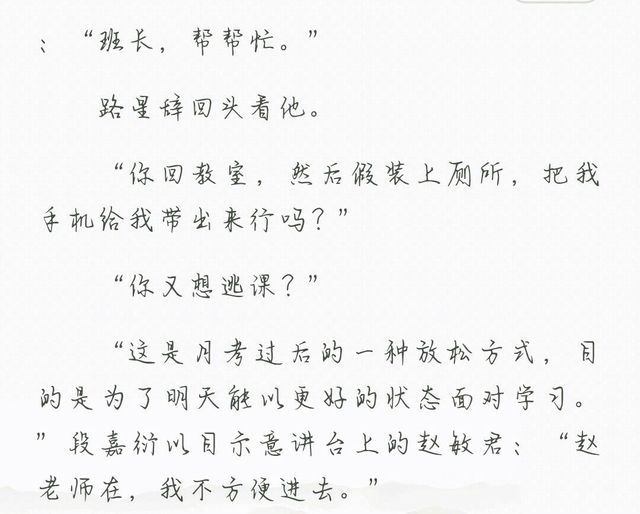 ：“班长，帮帮忙。”
路星辞回头看他。
“你回教室，然后假装上厕所，把我
手机给我带出来行吗？”
“你又想逃课？”
“这是月考过后的一种放松方式，目
的是为了明天能以更好的状态面对学习。
”段嘉衍以目示意讲台上的赵敏君：“赵
老师在，我不方便进去。”